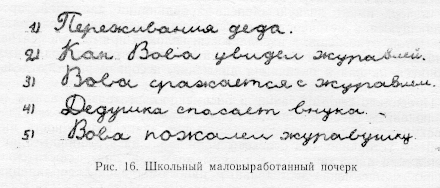 1) Переживания деда.
2) Как Вова увидел журавлей.
3) Вова сражается с журавлем.
4) Дедушка спасает внука.
5) Вова пожалел журавушку
Рис. 16. Школьный маловыработанный почерк